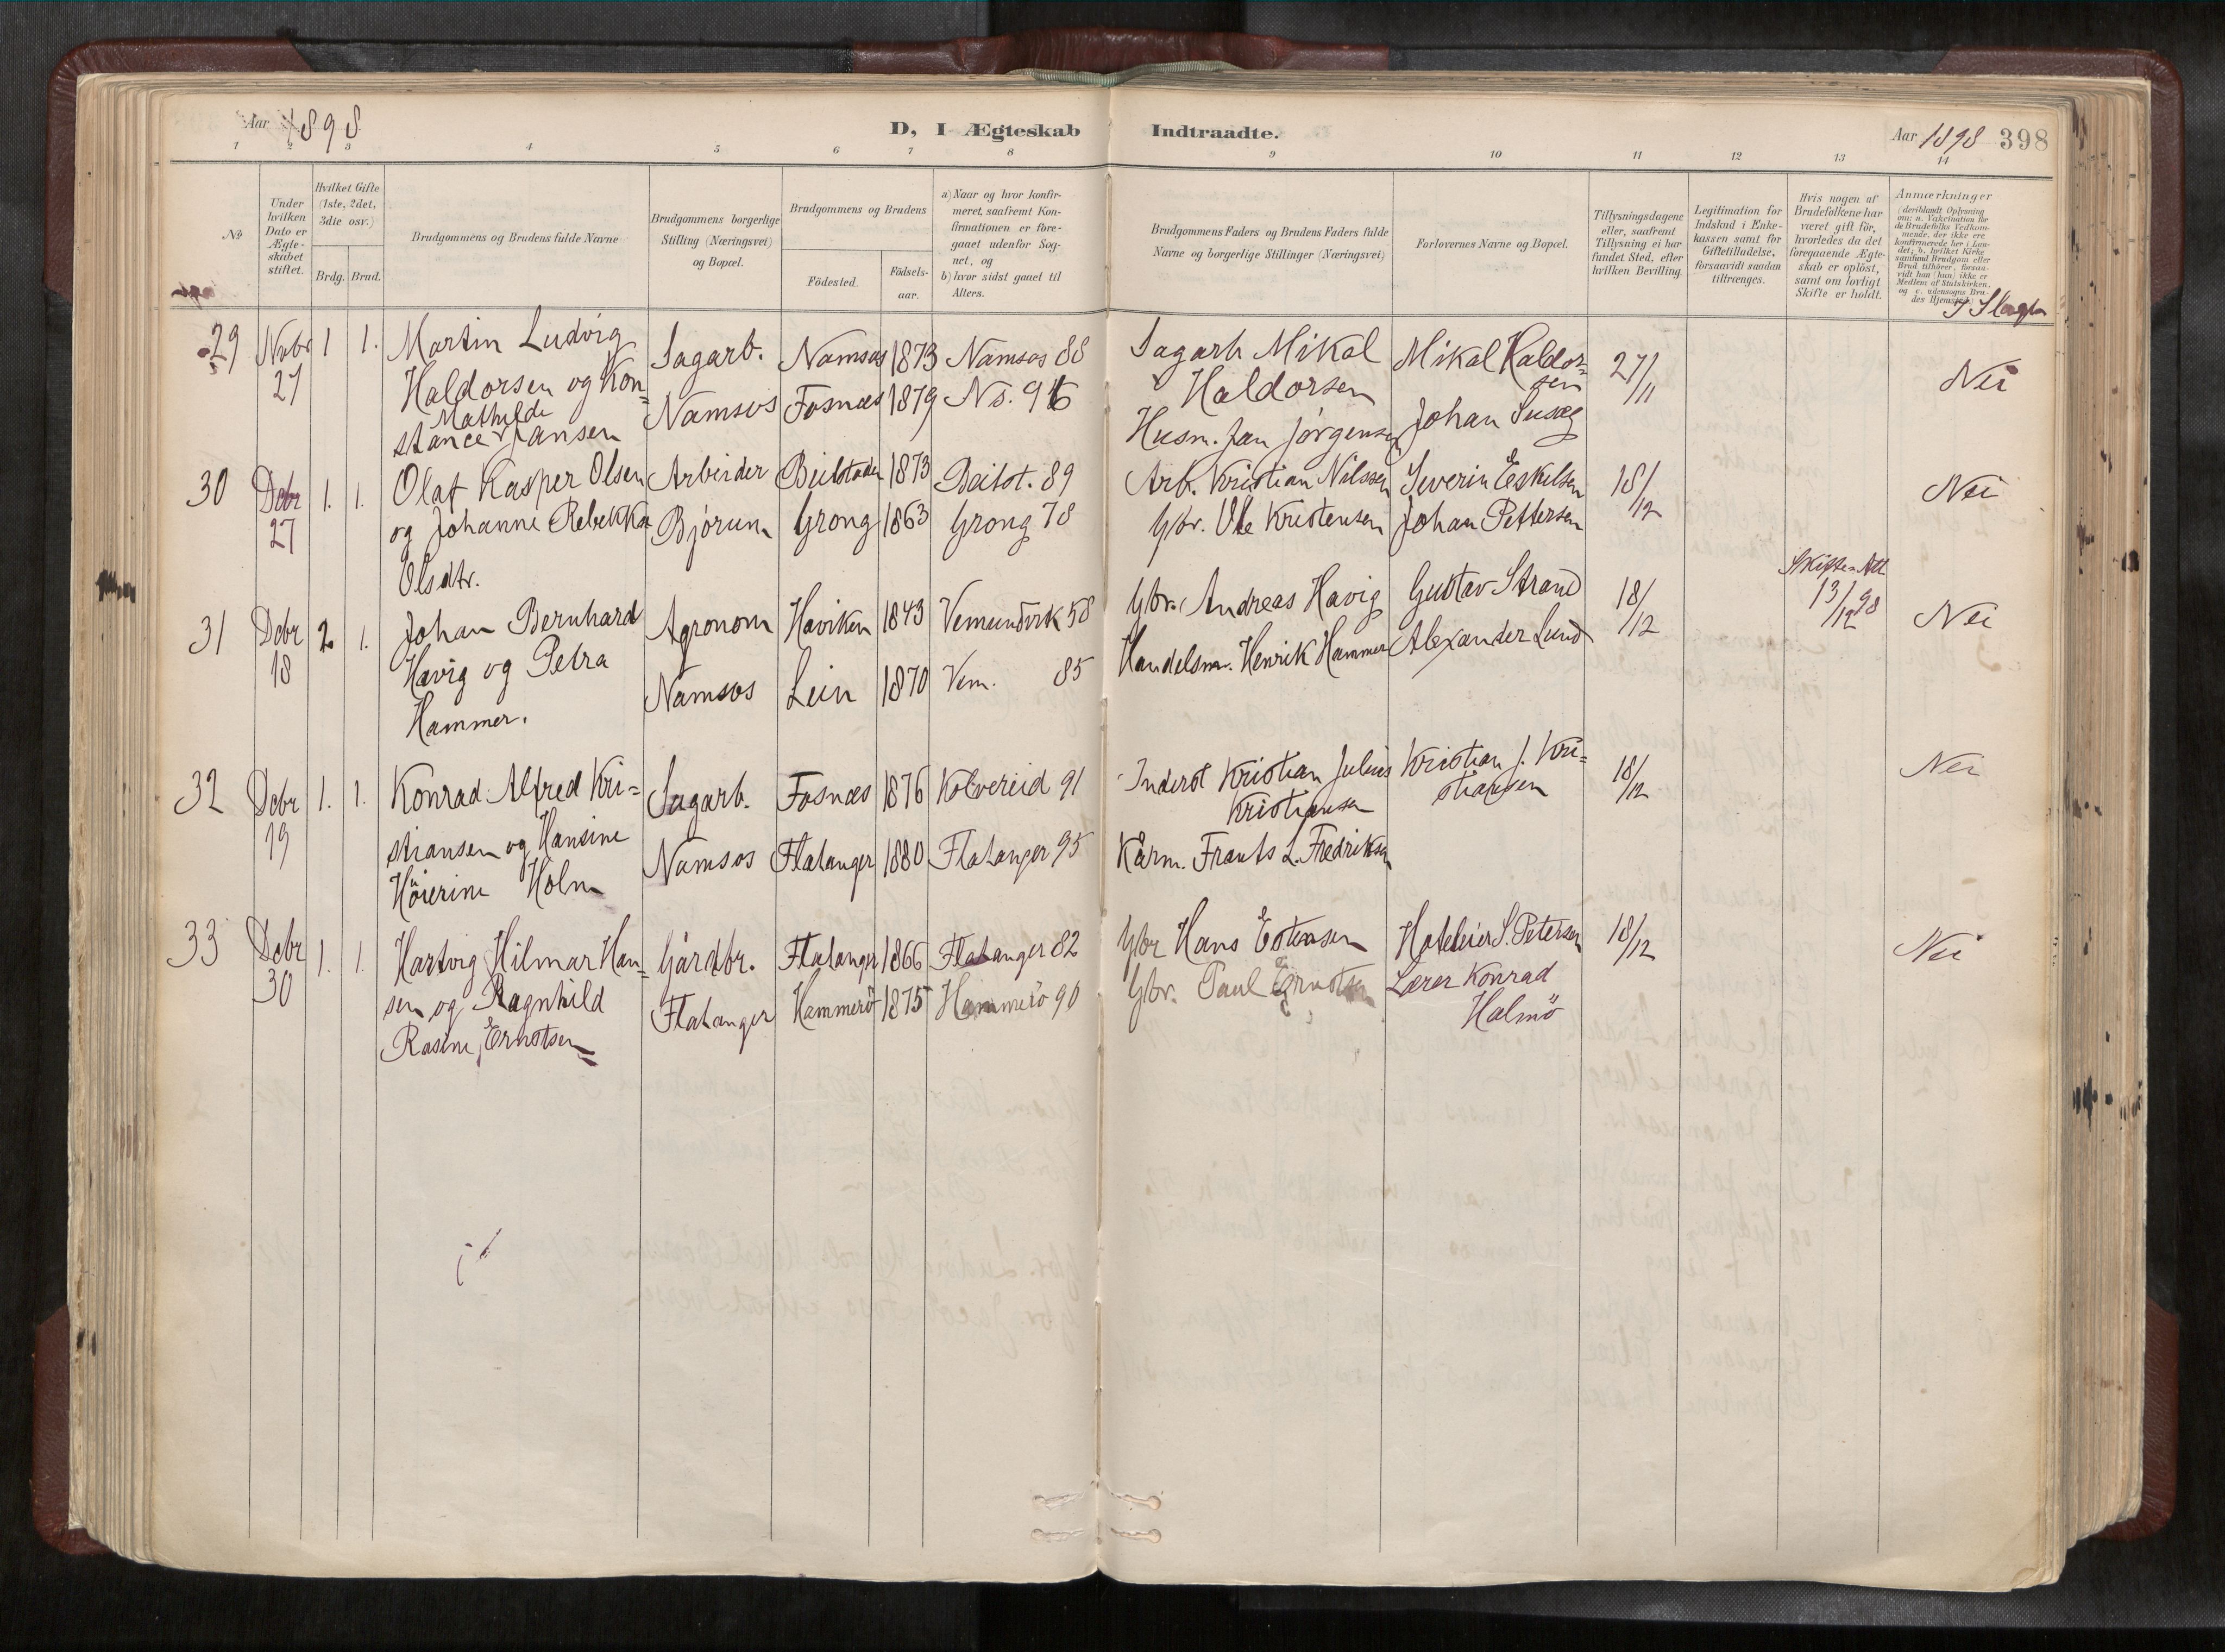 Aar 1898
D, I Ægteskab Indtraadte.
Aar 1898 398
1 2 3 4 5 6 7 8 9 10 11 12 13 14
No
Under hvilken Dato er Ægteskabet stiftet.
Hvilket Gifte (1ste, 2det, 3die osv.)
Brdg. Brud.
Brudgommens og Brudens fulde Navne
Brudgommens borgerlige Stilling (Næringsvei) og Bopæl.
Brudgommens og Brudens
Födested.
Födsels-aar.
a) Naar og hvor konfir-
meret, saafremt Kon-
firmationen er fore-
gaaet udenfor Sog-
net, og
b) hvor sidst gaaet til
Alters.
Brudgommens Faders og Brudens Faders fulde
Navne og borgerlige Stillinger (Næringsvei)
Forlovernes Navne og Bopæl.
Tillysningsdagene
eller, saafremt
Tillysning ei har
fundet Sted, efter
hvilken Bevilling.
Legitimation for
Indskud i Enke-
kassen samt for
Giftetilladelse,
forsaavidt saadan
tiltrænges.
Hvis nogen af
Brudefolkene har
været gift för,
hvorledes da det
foregaaende Ægte-
skab er oplöst,
samt om lovligt
Skifte er holdt.
Anmærkninger
(deriblandt Oplysning
om: a. Vakcination for
de Brudefolks Vedkom-
mende, der ikke ere
konfirmerede her i Lan-
det; b. hvilket Kirke
samfund Brudgom eller
Brud tilhörer, forsaa-
vidt han (hun) ikke er
Medlem af Statskirken,
og c. udensogns Bru-
des Hjemsted)
29 Novbr 27 1 1. Martin Ludvig
Haldorsen og Kon=
Mathilde
stance Jansen
Sagarb.
Namsos
Namsos 1873 Namsos 88
Fosnæs 1879 Ns. 96
Sagarb Mikal
Haldorsen
Husm. Jan Jörgensen
Mikal Haldor=
sen
Johan Susæg
27/11
Nei
30 Dcbr 27 1. 1. Olaf Kasper Olsen
og Johanne Rebekka
Olsdtr.
Arbeider
Bjørum
Beitstaden 1873 Beitst. 89
Grong 1863 Grong 78
Arb. Kristian Nilssen
Gbr. Ole Kristensen
Severin Eskelsen
Johan Pettersen
18/12
Nei
31 Dcbr 18 2. 1. Johan Bernhard
Havig og Petra
Hammer.
Agronom
Namsos
Haviken 1843 Vemundvik 58
Lein 1870 Vem. 85
Gbr. Andreas Havig
Handelsm. Henrik Hammer
Gustav Strand
Alexander Lund
18/12
Skifte Att
13/12 98
Nei
32 Dcbr 19 1. 1. Konrad Alfred Kri=
stiansen og Hansine
Höierine Holm
Sagarb.
Namsos
Fosnæs 1876 Kolvereid 91
Flatanger 1880 Flatanger 95
Inderst Kristian Julius
Kristiansen
Kårm. Frants L. Fredriksen
Kristian J. Kri=
stiansen
18/12
Nei
33 Dcbr 30 1. 1. Hartvig Hilmar Han=
sen og Ragnhild
Rasine Ernstsen
Gårdbr.
Flatanger
Flatanger 1866 Flatanger 82
Hammerö 1875 Hammerö 90
Gbr Hans Estensen
Gbr. Paul Ernstsen
Hoteleier S. Petersen
Lærer Konrad
Halmö
18/12
Nei